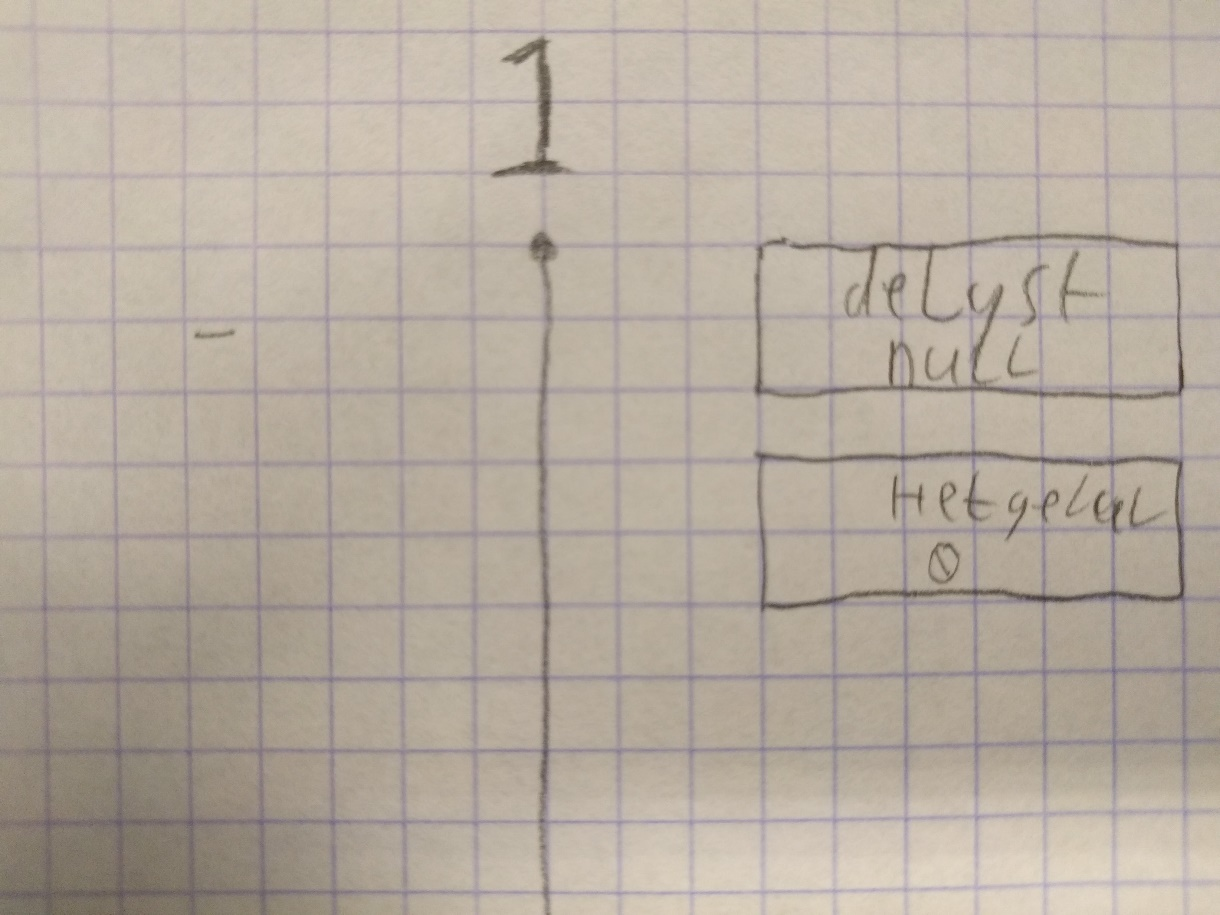 1
-
deLyst
null
Hetgetal
0